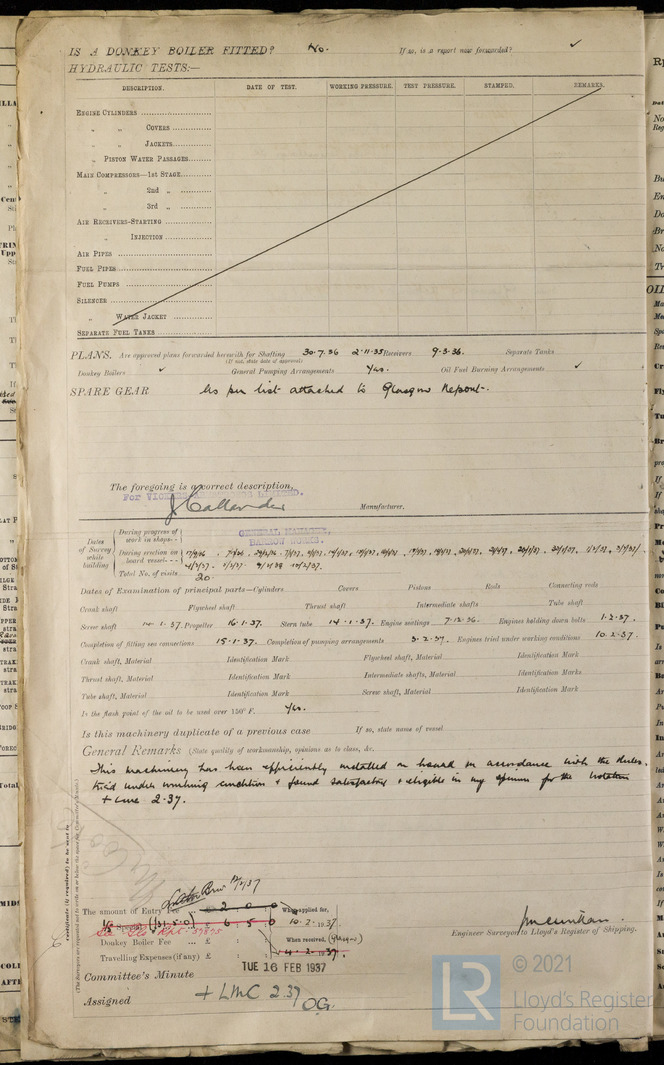 IS A DONKEY BOILER FITTED? No. If so, is a report now forwarded? ✓
HYDRAULIC TESTS:—
DESCRIPTION. DATE OF TEST. WORKING PRESSURE. TEST PRESSURE. STAMPED. REMARKS.
ENGINE CYLINDERS
„ „ COVERS
„ „ JACKETS
„ PISTON WATER PASSAGES
MAIN COMPRESSORS—1st STAGE
„ 2nd „
„ 3rd „
AIR RECEIVERS-STARTING
„ INJECTION
AIR PIPES
FUEL PIPES
FUEL PUMPS
SILENCER
„ WATER JACKET
SEPARATE FUEL TANKS
PLANS. Are approved plans forwarded herewith for Shafting 30.7.36 2.11.35 Receivers 9.3.36. Separate Tanks
(If not, state date of approval)
Donkey Boilers ✓ General Pumping Arrangements Yes. Oil Fuel Burning Arrangements ✓
SPARE GEAR As per list attached to Glasgow Report.
The foregoing is a correct description,
For VICKERS LIMITED.
J Callander Manufacturer.
GENERAL MANAGER,
BARROW WORKS.
Dates of Survey while building
During progress of work in shops--
During erection on board vessel---
Total No. of visits 20.
Dates of Examination of principal parts—Cylinders Covers Pistons Rods Connecting rods
Crank shaft Flywheel shaft Thrust shaft Intermediate shafts Tube shaft
Screw shaft 14.1.37. Propeller 16.1.37. Stern tube 14.1.37. Engine seatings 7.12.36. Engines holding down bolts 1.2.37.
Completion of fitting sea connections 15.1.37. Completion of pumping arrangements 3.2.37. Engines tried under working conditions 10.2.37.
Crank shaft, Material Identification Mark Flywheel shaft, Material Identification Mark
Thrust shaft, Material Identification Mark Intermediate shafts, Material Identification Marks
Tube shaft, Material Identification Mark Screw shaft, Material Identification Mark
Is the flash point of the oil to be used over 150° F. Yes.
Is this machinery duplicate of a previous case If so, state name of vessel
General Remarks (State quality of workmanship, opinions as to class, &c.
This machinery has been efficiently installed on board in accordance with the Rules,
tried under working condition & found satisfactory & eligible in my opinion for the notation
+ LMC 2.37.
(The Surveyors are requested not to write on or below the space for Committee's Minute.)
The amount of Entry Fee ... 2 : 0 : 0 When applied for,
1/5 Special (£31.5.0) £ 6 : 5 : 0 10.2.1937.
Donkey Boiler Fee ... £ : : When received, (Glasgow)
Travelling Expenses (if any) £ : : 4.2.1937.
Engineer Surveyor to Lloyd's Register of Shipping.
Committee's Minute TUE 16 FEB 1937
Assigned + LMC 2.37 OG.
LR
© 2021
Lloyd's Register
Foundation